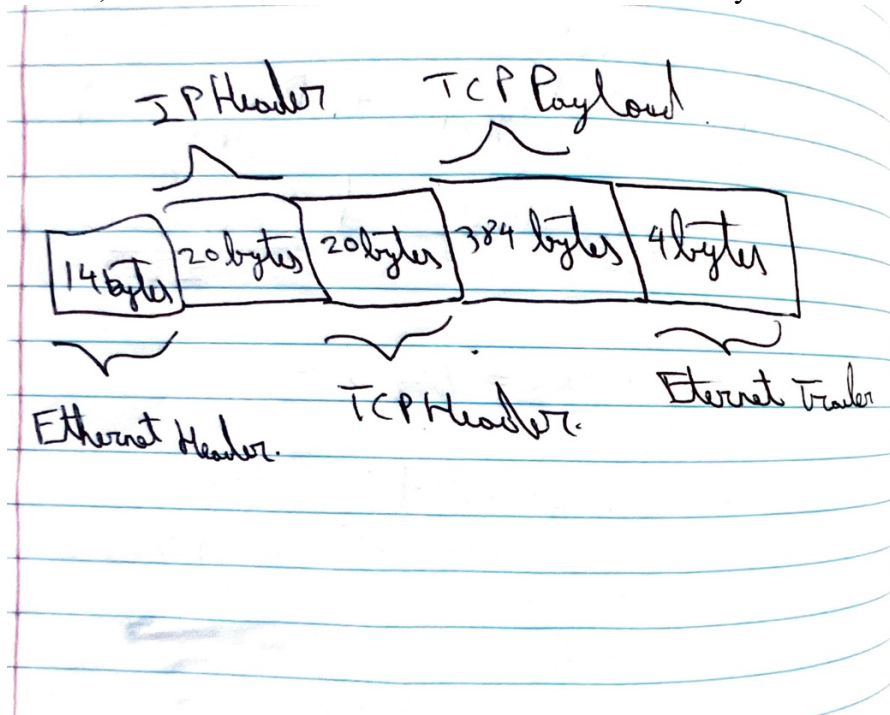 IP Header TCP Payload
14 bytes 20 bytes 20 bytes 384 bytes 4 bytes
Ethernet Header. TCP Header. Eternet Trailer